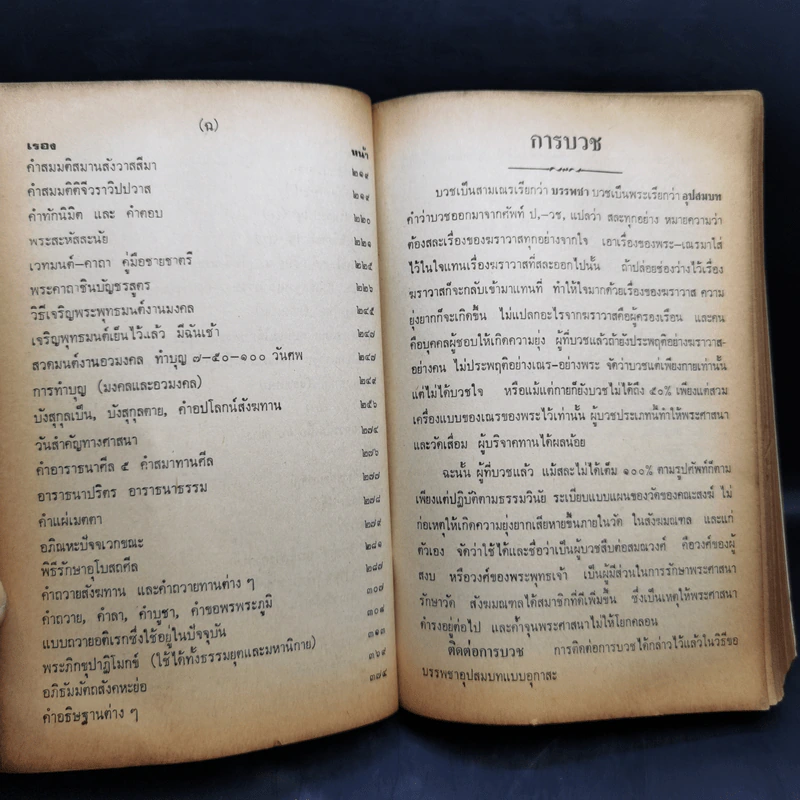 (ฉ)
เรื่อง หน้า
คำสมมติสมานสังวาสสีมา ๒๑๙
คำสมมติติจีวราวิปปวาส ๒๑๙
คำทักนิมิต และ คำตอบ ๒๒๐
พระสะหัสสะนัย ๒๒๑
เวทมนต์–คาถา คู่มือชายชาตรี ๒๒๕
พระคาถาชินบัญชรสูตร ๒๒๖
วิธีเจริญพระพุทธมนต์งานมงคล ๒๔๕
เจริญพุทธมนต์เย็นไว้แล้ว มีฉันเช้า ๒๔๗
สวดมนต์งานอวมงคล ทำบุญ ๗–๕๐–๑๐๐ วันศพ ๒๔๗
การทำบุญ (มงคลและอวมงคล) ๒๔๙
บังสุกุลเป็น, บังสุกุลตาย, คำอปโลกน์สังฆทาน ๒๕๖
วันสำคัญทางศาสนา ๒๗๔
คำอาราธนาศีล ๕ คำสมาทานศีล ๒๗๖
อาราธนาปริตร อาราธนาธรรม ๒๗๗
คำแผ่เมตตา ๒๗๘
อภิณหะปัจจเวกขณะ ๒๗๙
พิธีรักษาอุโบสถศีล ๒๘๑
คำถวายสังฆทาน และคำถวายทานต่าง ๆ ๒๘๗
คำถวาย, คำลา, คำบูชา, คำขอพรพระภูมิ ๓๐๗
แบบถวายอดิเรกซึ่งใช้อยู่ในปัจจุบัน ๓๐๙
พระภิกขุปาฏิโมกข์ (ใช้ได้ทั้งธรรมยุตและมหานิกาย) ๓๑๓
อภิธัมมัตถสังคหะย่อ ๓๖๙
คำอธิษฐานต่าง ๆ ๓๗๔
การบวช
บวชเป็นสามเณรเรียกว่า บรรพชา บวชเป็นพระเรียกว่า อุปสมบท
คำว่าบวชออกมาจากศัพท์ ป,–วช, แปลว่า สละทุกอย่าง หมายความว่า
ต้องสละเรื่องของฆราวาสทุกอย่างจากใจ เอาเรื่องของพระ–เณรมาใส่
ไว้ในใจแทนเรื่องฆราวาสที่สละออกไปนั้น ถ้าปล่อยช่องว่างไว้เรื่อง
ฆราวาสก็จะกลับเข้ามาแทนที่ ทำให้ใจมากด้วยเรื่องของฆราวาส ความ
ยุ่งยากก็จะเกิดขึ้น ไม่แปลกอะไรจากฆราวาสคือผู้ครองเรือน และคน
คือบุคคลผู้ชอบให้เกิดความยุ่ง ผู้ที่บวชแล้วถ้ายังประพฤติอย่างฆราวาส–
อย่างคน ไม่ประพฤติอย่างเณร–อย่างพระ จัดว่าบวชแต่เพียงกายเท่านั้น
แต่ไม่ได้บวชใจ หรือแม้แต่กายก็ยังบวชไม่ได้ถึง ๕๐% เพียงแต่สวม
เครื่องแบบของเณรของพระไว้เท่านั้น ผู้บวชประเภทนี้ทำให้พระศาสนา
และวัดเสื่อม ผู้บริจาคทานได้ผลน้อย
ฉะนั้น ผู้ที่บวชแล้ว แม้สละไม่ได้เต็ม ๑๐๐% ตามรูปศัพท์ก็ตาม
เพียงแต่ปฏิบัติตามธรรมวินัย ระเบียบแบบแผนของวัดของคณะสงฆ์ ไม่
ก่อเหตุให้เกิดความยุ่งยากเสียหายขึ้นภายในวัด ในสังฆมณฑล และแก่
ตัวเอง จัดว่าใช้ได้และชื่อว่าเป็นผู้บวชสืบต่อสมณวงศ์ คือวงศ์ของผู้
สงบ หรือวงศ์ของพระพุทธเจ้า เป็นผู้มีส่วนในการรักษาพระศาสนา
รักษาวัด สังฆมณฑลได้สมาชิกที่ดีเพิ่มขึ้น ซึ่งเป็นเหตุให้พระศาสนา
ดำรงอยู่ต่อไป และค้ำจุนพระศาสนาไม่ให้โยกคลอน
ติดต่อการบวช การติดต่อการบวชได้กล่าวไว้แล้วในวิธีขอ
บรรพชาอุปสมบทแบบอุกาสะ